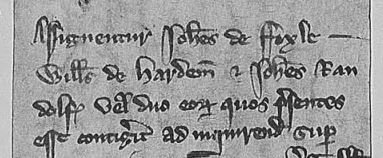 Assignentur Joh̄es de Foxle
Will̄s de Harden̄ & Joh̄es Ran
dolf vel duo eoꝝ quos p̄sentes
esse contig̃it ad inquirend̄ sup̄